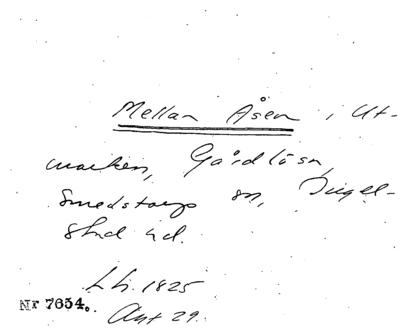 Mellan Åsen i Ut-
marken, Gårdlösa,
Smedstorps sn, Ingel-
stad hd.
Lh. 1825
Akt 29.
Nr 7654.